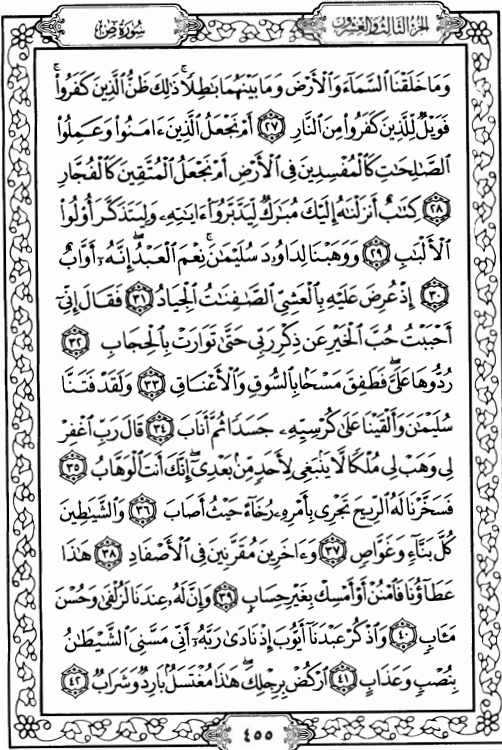 الجزء الثالث والعشرون
سُورَةُ صٓ
وَمَا خَلَقْنَا ٱلسَّمَآءَ وَٱلْأَرْضَ وَمَا بَيْنَهُمَا بَٰطِلًا ۚ ذَٰلِكَ ظَنُّ ٱلَّذِينَ كَفَرُوا۟ ۚ
فَوَيْلٌ لِّلَّذِينَ كَفَرُوا۟ مِنَ ٱلنَّارِ ٢٧ أَمْ نَجْعَلُ ٱلَّذِينَ ءَامَنُوا۟ وَعَمِلُوا۟
ٱلصَّٰلِحَٰتِ كَٱلْمُفْسِدِينَ فِى ٱلْأَرْضِ أَمْ نَجْعَلُ ٱلْمُتَّقِينَ كَٱلْفُجَّارِ
٢٨ كِتَٰبٌ أَنزَلْنَٰهُ إِلَيْكَ مُبَٰرَكٌ لِّيَدَّبَّرُوٓا۟ ءَايَٰتِهِۦ وَلِيَتَذَكَّرَ أُو۟لُوا۟
ٱلْأَلْبَٰبِ ٢٩ وَوَهَبْنَا لِدَاوُۥدَ سُلَيْمَٰنَ ۚ نِعْمَ ٱلْعَبْدُ ۖ إِنَّهُۥٓ أَوَّابٌ
٣٠ إِذْ عُرِضَ عَلَيْهِ بِٱلْعَشِىِّ ٱلصَّٰفِنَٰتُ ٱلْجِيَادُ ٣١ فَقَالَ إِنِّىٓ
أَحْبَبْتُ حُبَّ ٱلْخَيْرِ عَن ذِكْرِ رَبِّى حَتَّىٰ تَوَارَتْ بِٱلْحِجَابِ ٣٢
رُدُّوهَا عَلَىَّ ۖ فَطَفِقَ مَسْحًۢا بِٱلسُّوقِ وَٱلْأَعْنَاقِ ٣٣ وَلَقَدْ فَتَنَّا
سُلَيْمَٰنَ وَأَلْقَيْنَا عَلَىٰ كُرْسِيِّهِۦ جَسَدًا ثُمَّ أَنَابَ ٣٤ قَالَ رَبِّ ٱغْفِرْ
لِى وَهَبْ لِى مُلْكًا لَّا يَنۢبَغِى لِأَحَدٍ مِّنۢ بَعْدِىٓ ۖ إِنَّكَ أَنتَ ٱلْوَهَّابُ ٣٥
فَسَخَّرْنَا لَهُ ٱلرِّيحَ تَجْرِى بِأَمْرِهِۦ رُخَآءً حَيْثُ أَصَابَ ٣٦ وَٱلشَّيَٰطِينَ
كُلَّ بَنَّآءٍ وَغَوَّاصٍ ٣٧ وَءَاخَرِينَ مُقَرَّنِينَ فِى ٱلْأَصْفَادِ ٣٨ هَٰذَا
عَطَآؤُنَا فَٱمْنُنْ أَوْ أَمْسِكْ بِغَيْرِ حِسَابٍ ٣٩ وَإِنَّ لَهُۥ عِندَنَا لَزُلْفَىٰ وَحُسْنَ
مَـَٔابٍ ٤٠ وَٱذْكُرْ عَبْدَنَآ أَيُّوبَ إِذْ نَادَىٰ رَبَّهُۥٓ أَنِّى مَسَّنِىَ ٱلشَّيْطَٰنُ
بِنُصْبٍ وَعَذَابٍ ٤١ ٱرْكُضْ بِرِجْلِكَ ۖ هَٰذَا مُغْتَسَلٌۢ بَارِدٌ وَشَرَابٌ ٤٢
٤٥٥